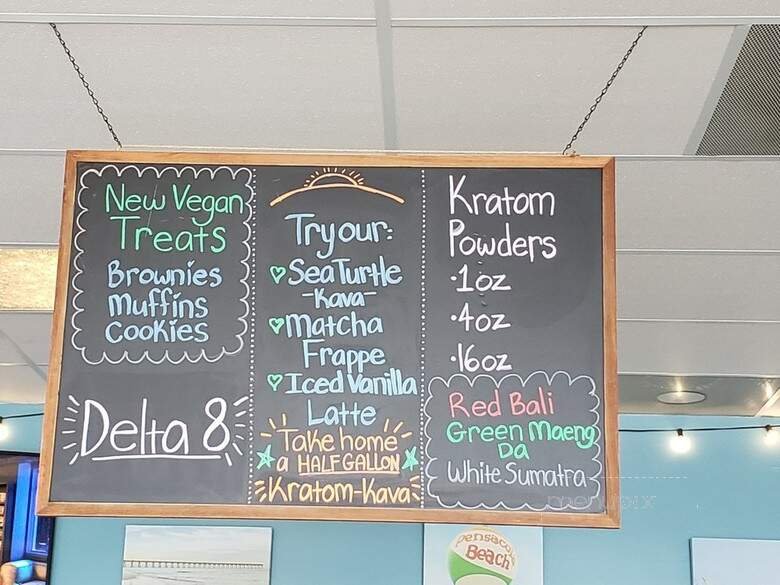 New Vegan
Treats
Brownies
Muffins
Cookies
Delta 8
Try our:
Sea Turtle
-Kava-
Matcha
Frappe
Iced Vanilla
Latte
Take home
a HALF GALLON
Kratom-Kava
Kratom
Powders
·1oz
·4oz
·16oz
Red Bali
Green Maeng
Da
White Sumatra
menupix
Pensacola
Beach